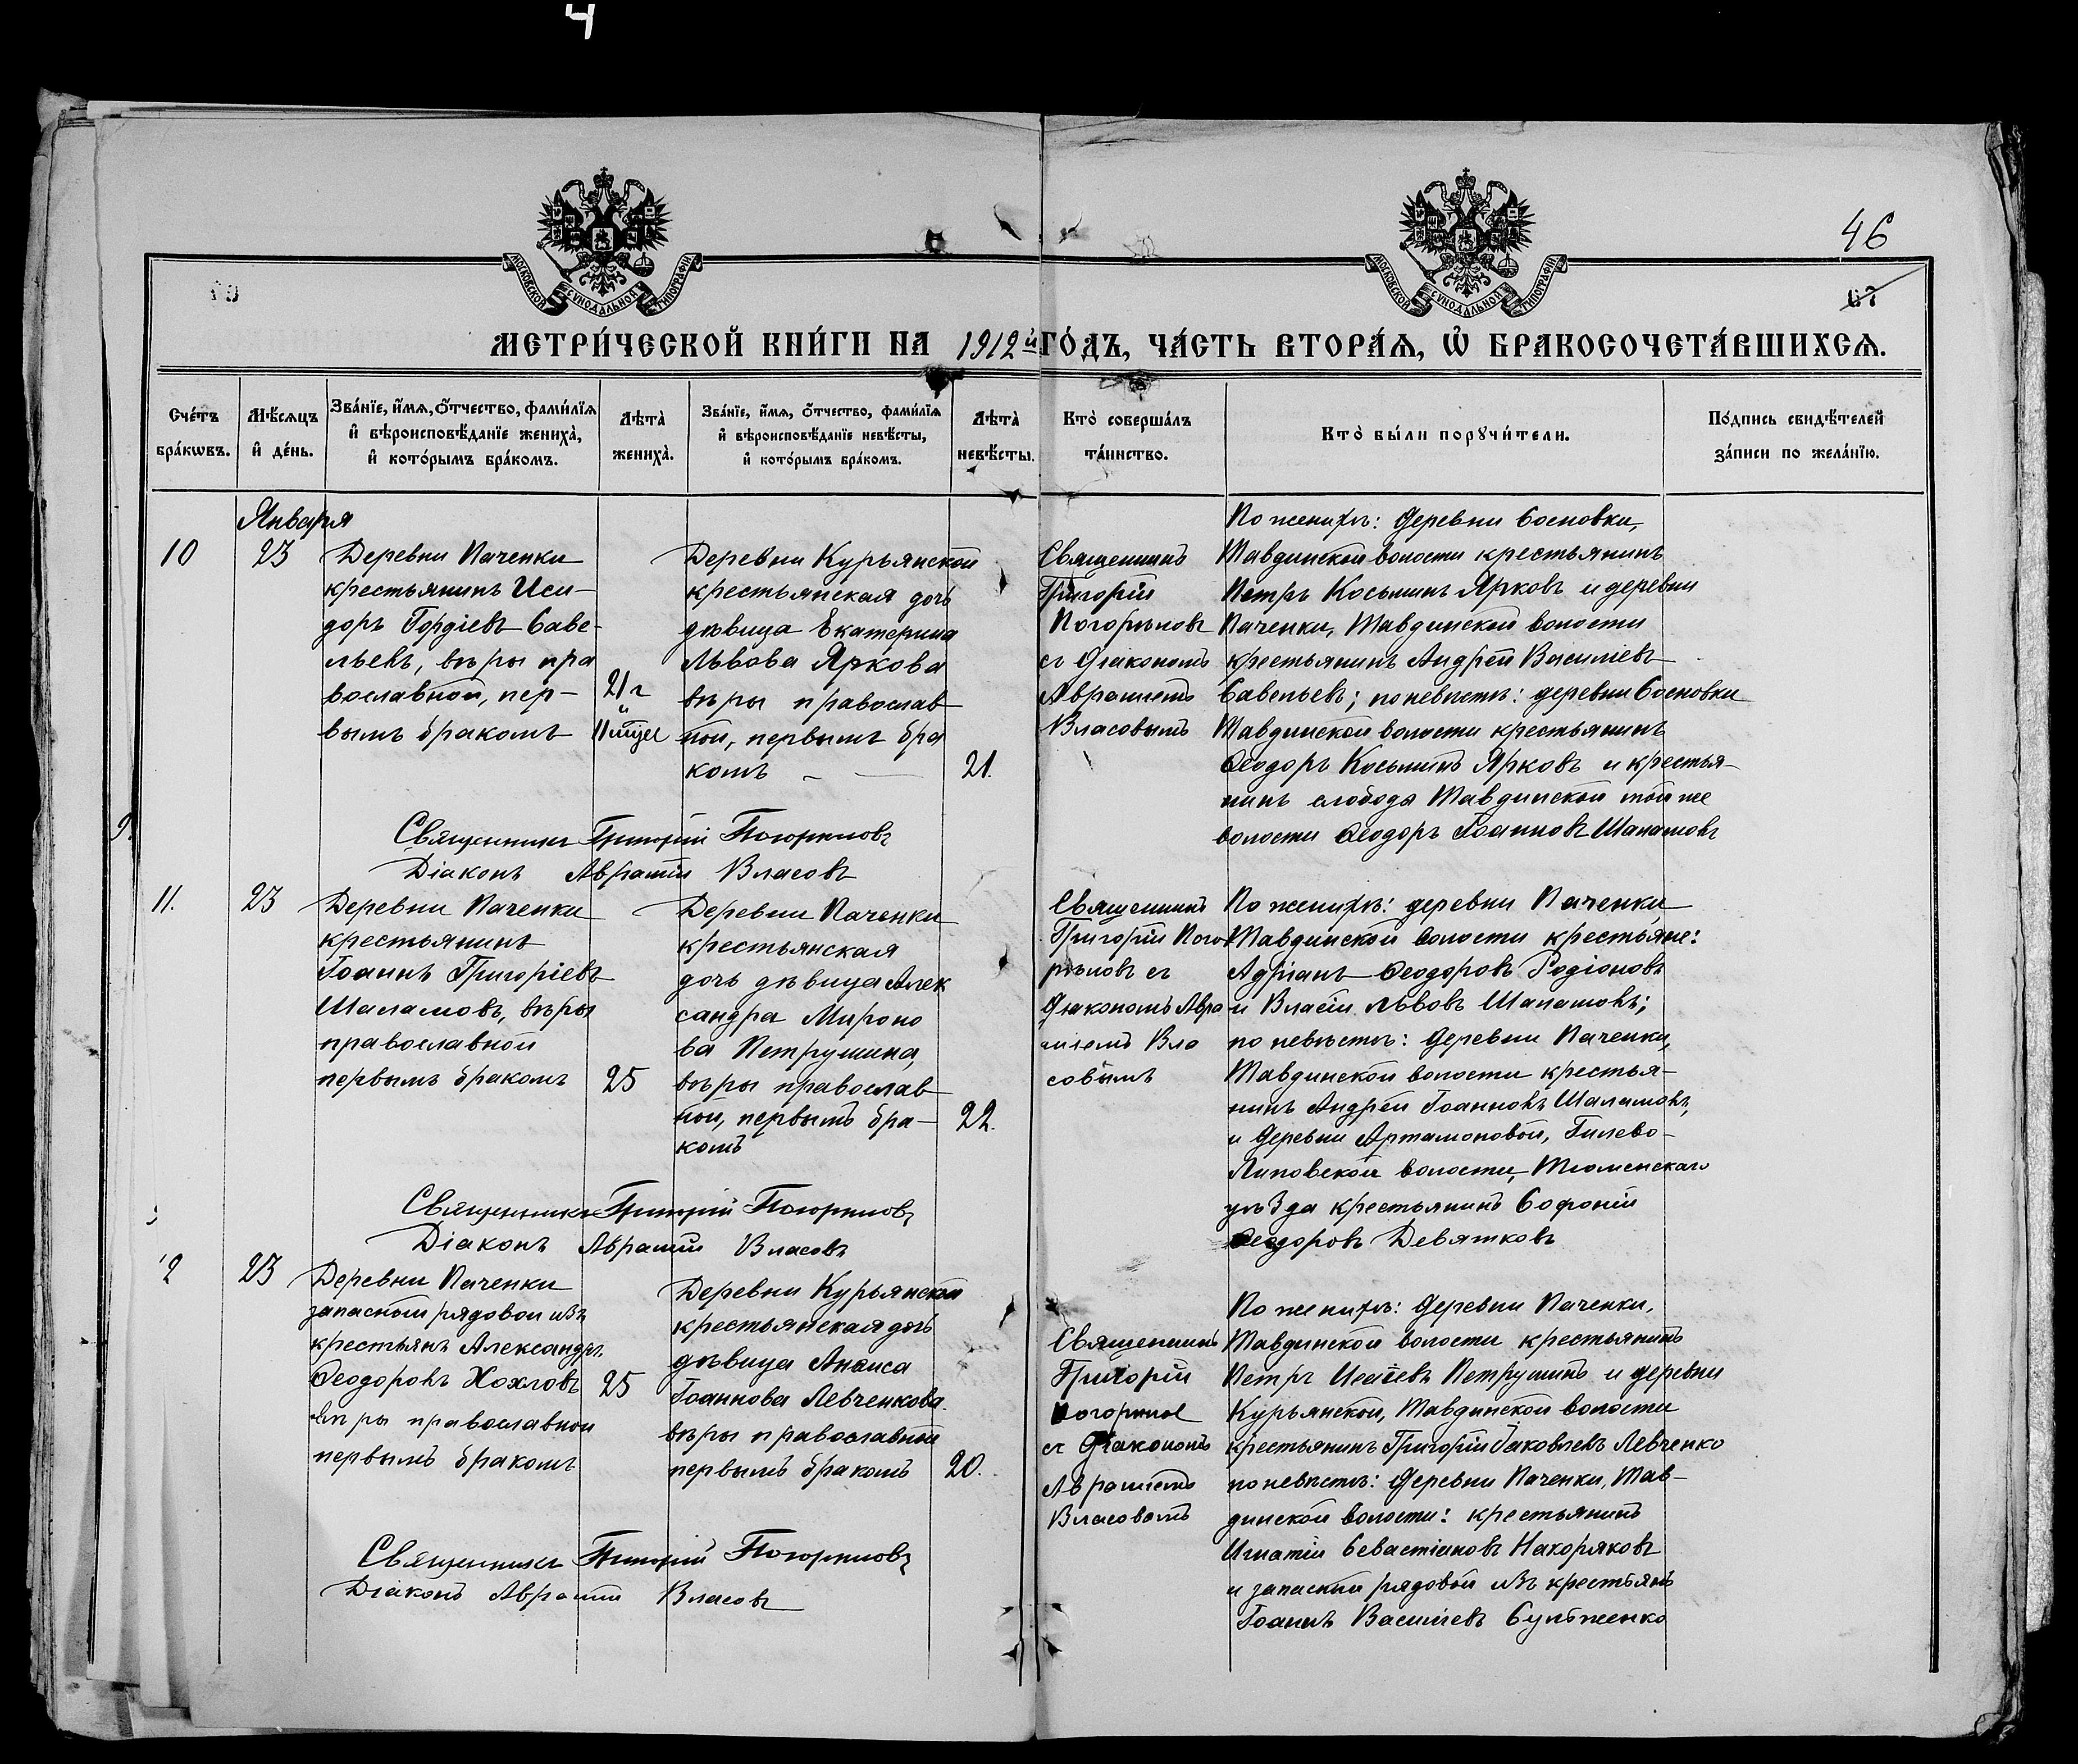 4
46
67
МОСКОВСКОЙ СѴНОДАЛЬНОЙ ТИПОГРАФІИ
МОСКОВСКОЙ СѴНОДАЛЬНОЙ ТИПОГРАФІИ
МЕТРИ́ЧЕСКОЙ КНИ́ГИ НА 1912й ГО́ДЪ, ЧА́СТЬ ВТОРА́Ѧ, Ѡ БРАКОСОЧЕТА́ВШИХСѦ.
Сче́тъ бра́кѡвъ.
Мѣ́сѧцъ и҆ де́нь.
Зва́нїе, и҆́мѧ, ѻ҆́тчество, фами́лїѧ и҆ вѣроисповѣ́данїе жениха̀, и҆ кото́рымъ бра́комъ.
Лѣта̀ жениха̀.
Зва́нїе, и҆́мѧ, ѻ҆́тчество, фами́лїѧ и҆ вѣроисповѣ́данїе невѣ́сты, и҆ кото́рымъ бра́комъ.
Лѣта̀ невѣ́сты.
Кто̀ соверша́лъ та́инство.
Кто̀ бы́ли порꙋчи́тели.
По́дпись свидѣ́телей за́писи по жела́нїю.
Января
10
23
Деревни Паченки
крестьянинъ Иси-
доръ Гордіевъ Саве-
льевъ, вѣры пра
вославной, пер-
вымъ бракомъ
21г
и
11 мѣс
Деревни Курьянской
крестьянская дочь
дѣвица Екатерина
Львова Яркова
вѣры православ
ной, первымъ бра
комъ
21.
Священникъ
Григорій
Погорѣловъ
съ діакономъ
Авраміемъ
Власовымъ
По женихѣ: деревни Сосновки,
Тавдинской волости крестьянинъ
Петръ Косьминъ Ярковъ и деревни
Паченки, Тавдинской волости
крестьянинъ Андрей Василіевъ
Савельевъ; по невѣстѣ: деревни Сосновки
Тавдинской волости крестьянинъ
Ѳеодоръ Косьминъ Ярковъ и крестья-
нинъ слободы Тавдинской той же
волости Ѳеодоръ Іоанновъ Шаламовъ
Священникъ Григорій Погорѣловъ
Діаконъ Аврамій Власовъ
11.
23
Деревни Паченки
крестьянинъ
Іоаннъ Григоріевъ
Шаламовъ, вѣры
православной
первымъ бракомъ
25
Деревни Паченки
крестьянская
дочь дѣвица Алек
сандра Мироно
ва Петрушина,
вѣры православ
ной, первымъ бра-
комъ
22.
Священникъ
Григорій Пого
рѣловъ съ
діакономъ Авра
міемъ Вла
совымъ
По женихѣ: деревни Паченки
Тавдинской волости крестьяне:
Адріанъ Ѳеодоровъ Родіоновъ
и Власій Львовъ Шаламовъ;
по невѣстѣ: деревни Паченки,
Тавдинской волости крестья-
нинъ Андрей Іоанновъ Шаламовъ,
и деревни Артамоновой, Гилево-
Липовской волости, Тюменскаго
уѣзда крестьянинъ Софоній
Ѳеодоровъ Девятковъ
Священникъ Григорій Погорѣловъ
Діаконъ Аврамій Власовъ
12
23
Деревни Паченки
запасной рядовой изъ
крестьянъ Александръ
Ѳеодоровъ Хохловъ
вѣры православной
первымъ бракомъ
25
Деревни Курьянской
крестьянская дочь
дѣвица Анѳиса
Іоаннова Левченкова
вѣры православной
первымъ бракомъ
20.
Священникъ
Григорій
Погорѣлов
съ діакономъ
Авраміемъ
Власовомъ
По женихѣ: деревни Паченки,
Тавдинской волости крестьянинъ
Петръ Исаіевъ Петрушинъ и деревни
Курьянской, Тавдинской волости
крестьянинъ Григорій Іаковлевъ Левченко
по невѣстѣ: деревни Паченки, Тав-
динской волости: крестьянинъ
Игнатій Севастіановъ Накоряковъ
и запасный рядовой изъ крестьянъ
Іоаннъ Василіевъ Сулѣженко
Священникъ Григорій Погорѣловъ
Діаконъ Аврамій Власовъ